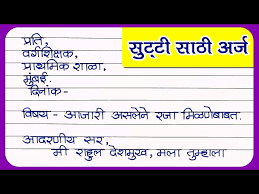 सुट्टी साठी अर्ज
प्रति,
वर्गशिक्षक,
प्राथमिक शाळा,
मुंबई.
दिनांक-
विषय - आजारी असलेने रजा मिळणेबाबत.
आदरणीय सर,
मी राहुल देशमुख, मला तुम्हाला